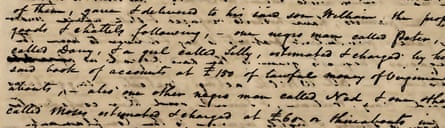 of them, gave & delivered to his said son William, the
goods & chattels following, — one negro man called Peter
called Davy & a girl called Silly, estimated & charged by
said book of accounts at £180 of lawful money of Virginia
— also one other negro man called Ned, & one other
called Moses estimated & charged at £60 or thereabouts